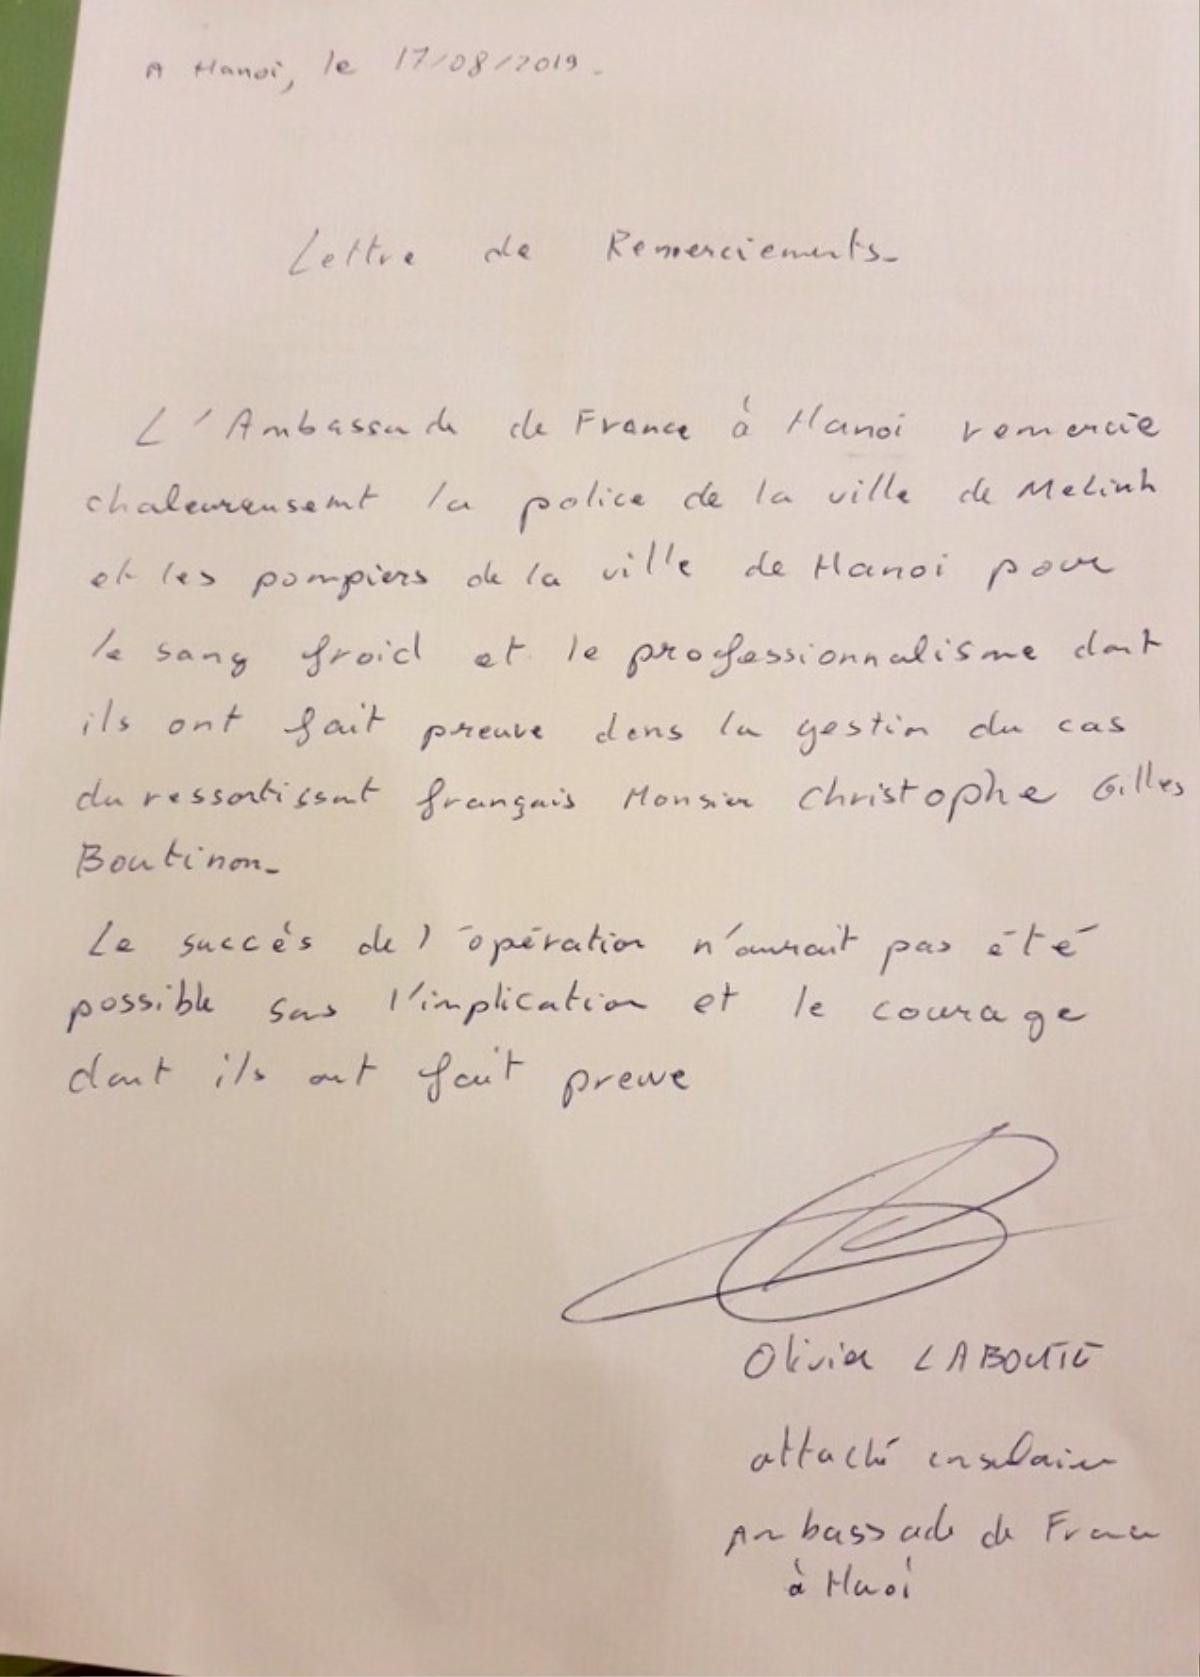 A Hanoi, le 17/08/2019.
Lettre de Remerciements_
L'Ambassade de France à Hanoi remercie
chaleureusemt la police de la ville de Melinh
et les pompiers de la ville de Hanoi pour
le sang froid et le professionnalisme dont
ils ont fait preuve dans la gestion du cas
du ressortissant français Monsieur Christophe Gilles
Boutinon_
Le succès de l'opération n'aurait pas été
possible sans l'implication et le courage
dont ils ont fait preuve
Olivier LABOUTE
attaché consulaire
Ambassade de France
à Hanoi